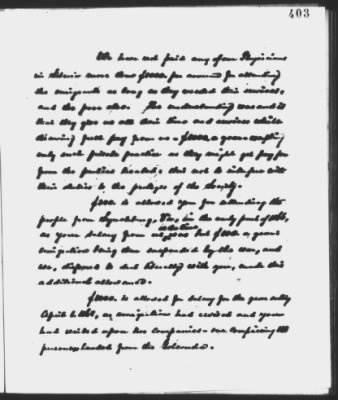 403
We have not paid any of our Physicians
in Liberia more than $ per annum for attending
the emigrants as long as they needed their services,
and the poor also. The understanding was and is
that they give us all their time and services whilst
drawing full pay from us a year excepting
only such private practice as they might get pay for
from the parties treated, this not to interfere with
their duties to the proteges of the Society.
is allowed you for attending the
people from Lynchburg, Va., in the early part of
as your salary from us was but a year
emigration being then suspended by the war, and
we, disposed to deal liberally with you, made this
additional allowance.
is allowed for salary for the year ending
April 1, as emigration had revived and you
had waited upon two companies one comprising the
persons landed from the Golconda.